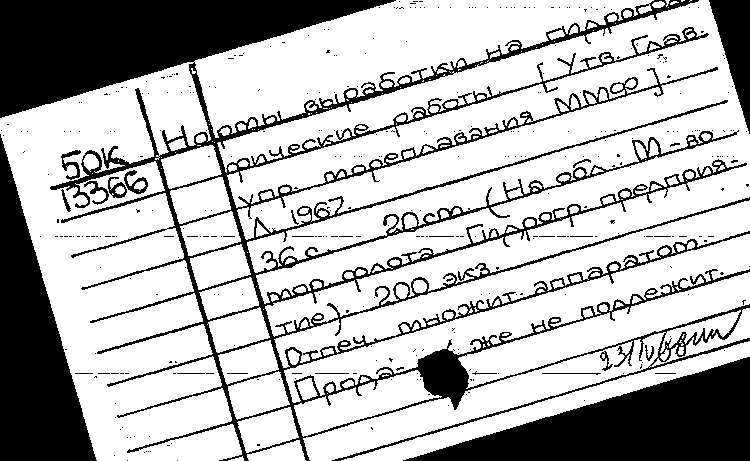 50К
13366
Нормы выработки на гидрогра-
фические работы. [Утв. Глав.
упр. мореплавания ММФ].
Л., 1967.
36 с. 20 cm. (На обл.: М-во
мор. флота. Гидрогр. предприя-
тие). 200 экз.
Отпеч. множит. аппаратом.
Прода- же не подлежит.